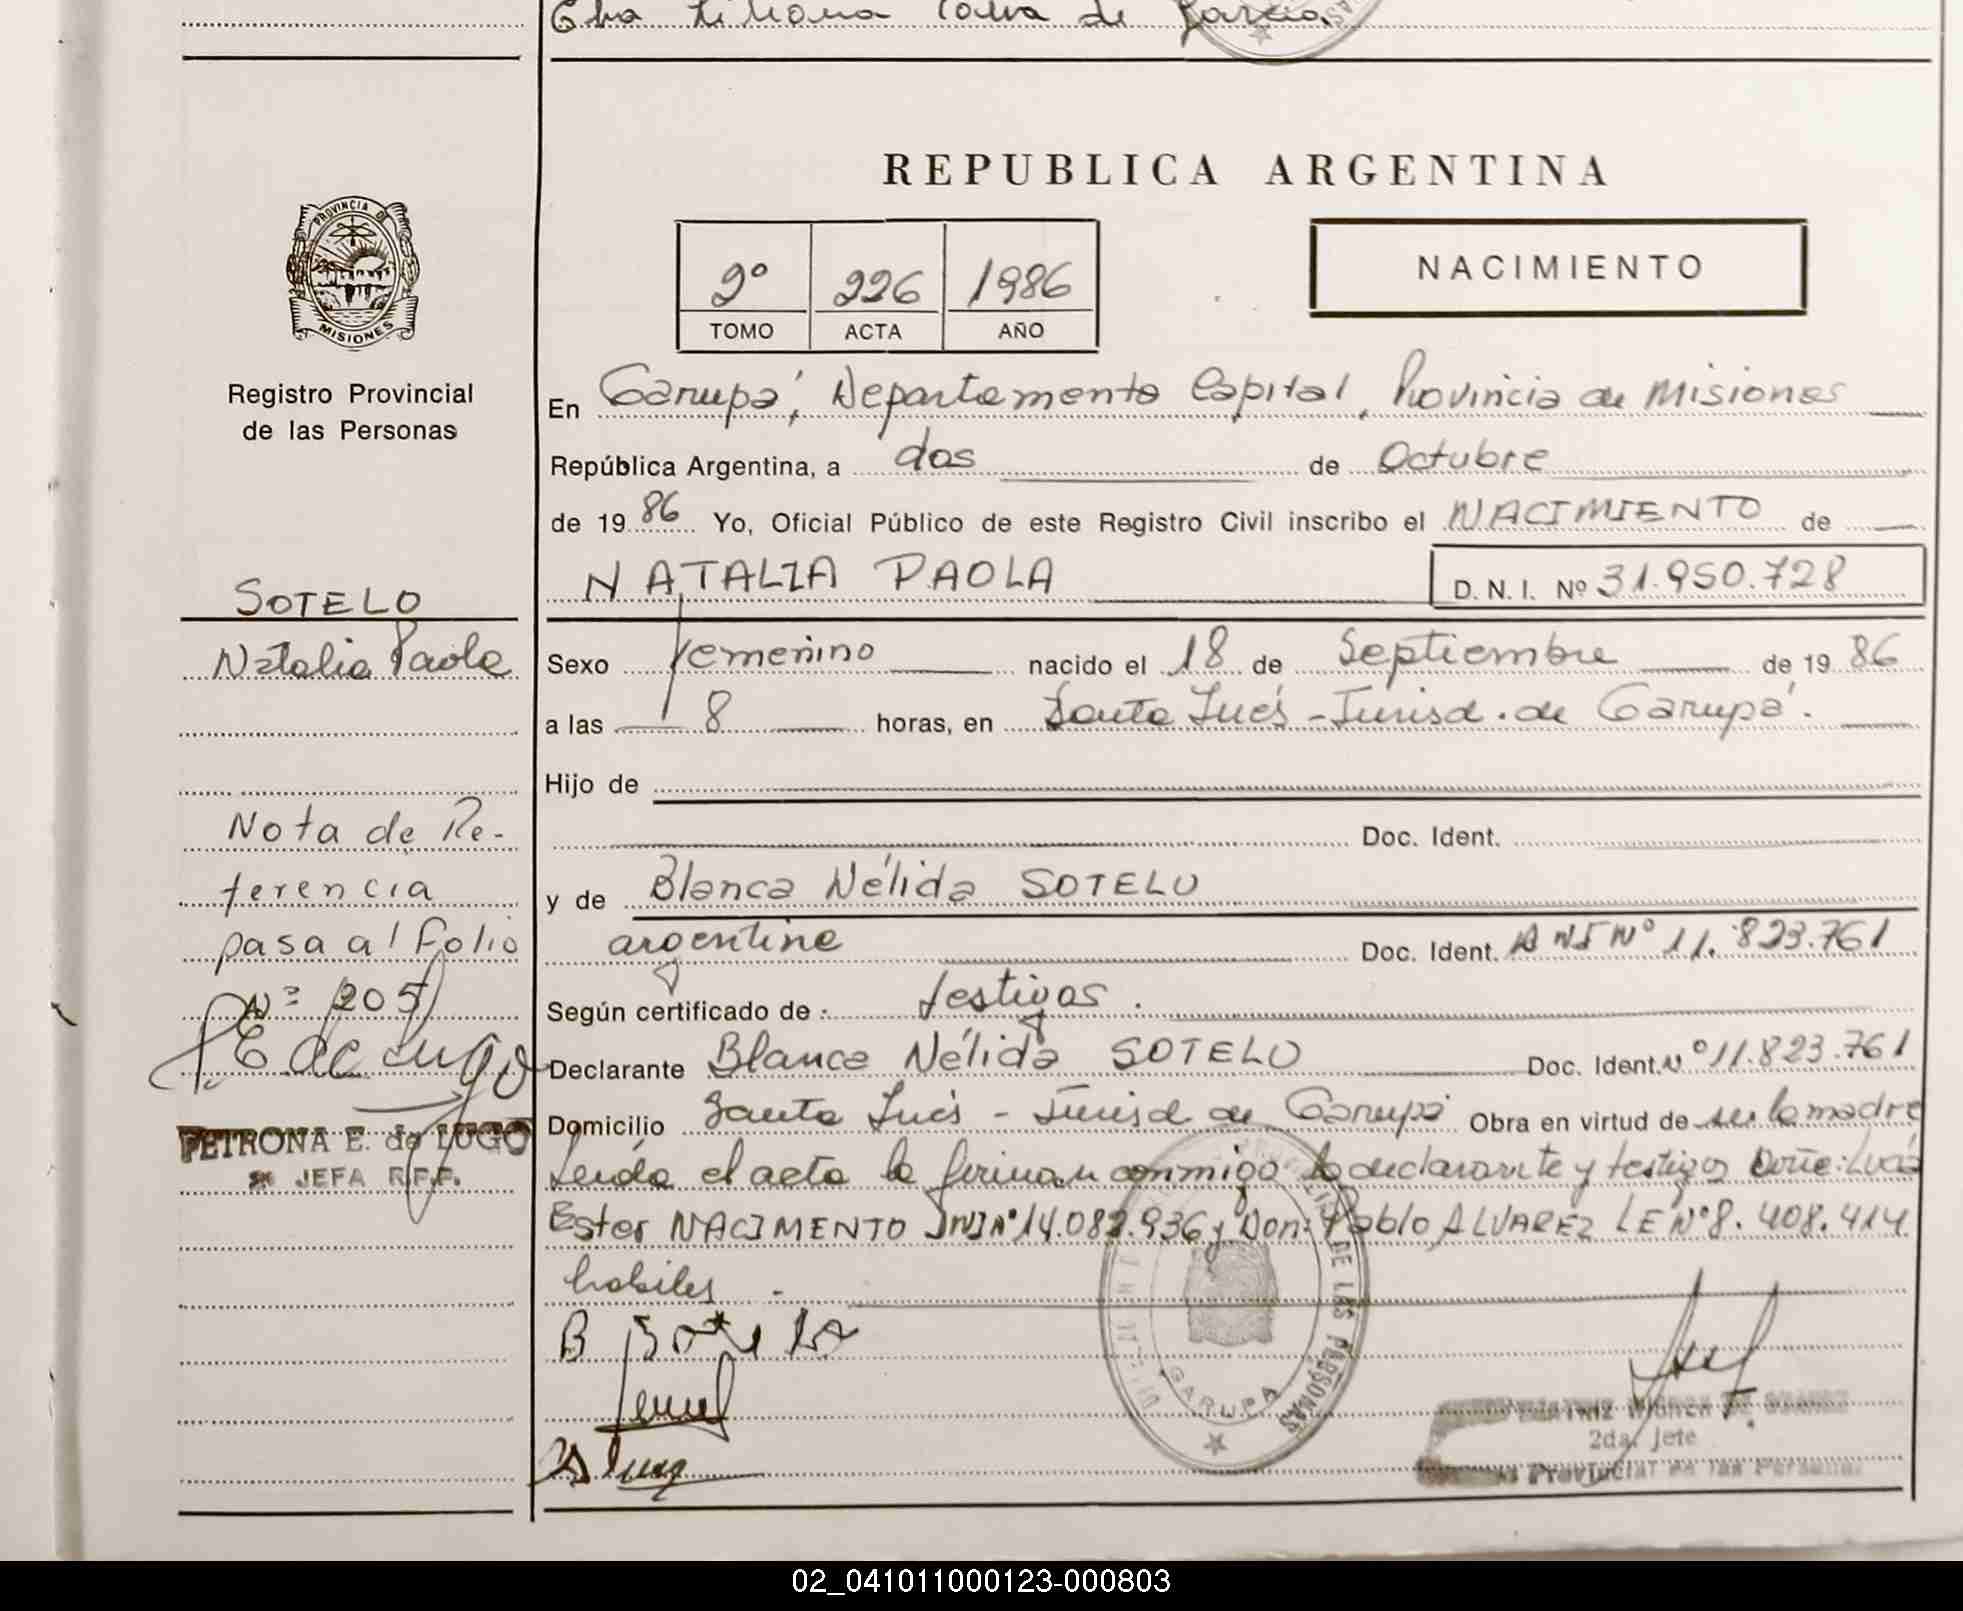 Elva Liliana de Garcia
REPUBLICA ARGENTINA
PROVINCIA DE
MISIONES
Registro Provincial
de las Personas
2º 226 1986
TOMO ACTA AÑO
NACIMIENTO
En Garupá, Departamento Capital, Provincia de Misiones
República Argentina, a dos de Octubre
de 1986 Yo, Oficial Público de este Registro Civil inscribo el NACIMIENTO de
NATALIA PAOLA D.N.I. Nº 31.950.728
SOTELO
Natalia Paola
Sexo femenino nacido el 18 de Septiembre de 1986
a las 8 horas, en Santa Inés - Jurisd. de Garupá.
Hijo de
Doc. Ident.
y de Blanca Nélida SOTELO
argentina Doc. Ident. DNI Nº 11.823.761
Según certificado de: testigos.
Declarante Blanca Nélida SOTELO Doc. Ident. Nº 11.823.761
Domicilio Santa Inés - Jurisd de Garupá Obra en virtud de ser la madre
Leída el acta la firman conmigo la declarante y testigos Doña: Lucía
Ester NACIMENTO DNI Nº 14.082.936 y Don: Pablo ALVAREZ LE Nº 8.408.414
habiles.
Nota de Re-
ferencia
pasa al folio
Nº 205
P E de Lugo
PETRONA E. de LUGO
JEFA R.P.P.
DE LAS PERSONAS
GARUPA
2da. Jefe
Provincial de las Personas
02_041011000123-000803